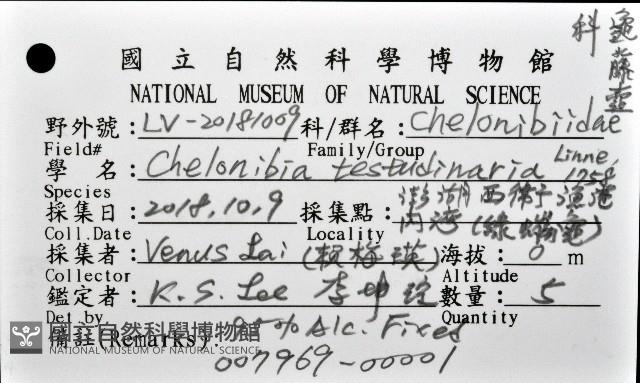 龜藤壺科
國立自然科學博物館
NATIONAL MUSEUM OF NATURAL SCIENCE
野外號：LV-20181009 科/群名：Chelonibiidae
Field# Family/Group
學 名：Chelonibia testudinaria Linne, 1758
Species 澎湖西衛子漁港
採集日：2018.10.9 採集點：內湾(綠蠵龜)
Coll.Date Locality
採集者：Venus Lai (賴梅瑛) 海拔：0 m
Collector Altitude
鑑定者：K. S. Lee 李坤瑄 數量：5
Det.by Quantity
備註(Remarks): 95% Alc. Fixed
007969-00001
國立自然科學博物館
NATIONAL MUSEUM OF NATURAL SCIENCE